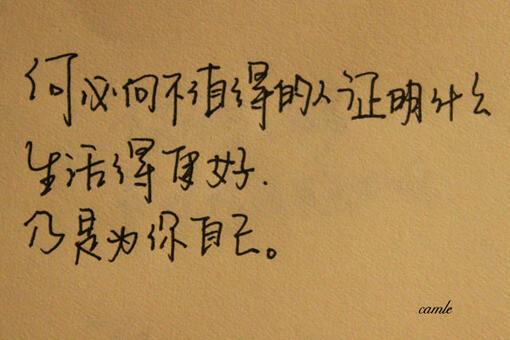 何必向不值得的人证明什么
生活得更好.
乃是为你自己。
camle